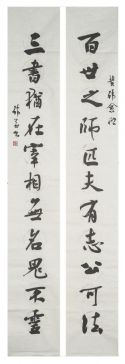 百世之師匹夫有志公可法
三書猶在宰相無名鬼不靈